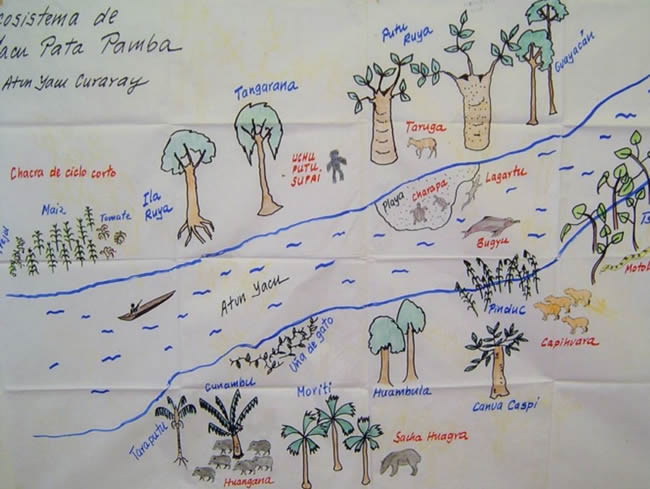 de
Yacu Pata Pamba
Atun Yacu Curaray
Putu
Ruya
Guayacán
Tangarana
Taruga
Chacra de ciclo corto
UCHU
PUTU
SUPAI
Ila
Ruya
Maiz
Tomate
Playa
Charapa
Lagartu
Bugyu
Atun Yacu
Pinduc
Capihuara
Uña de gato
Cunambu
Moriti
Huambula
Canua Caspi
Taraputu
Huangana
Sacha Huagra